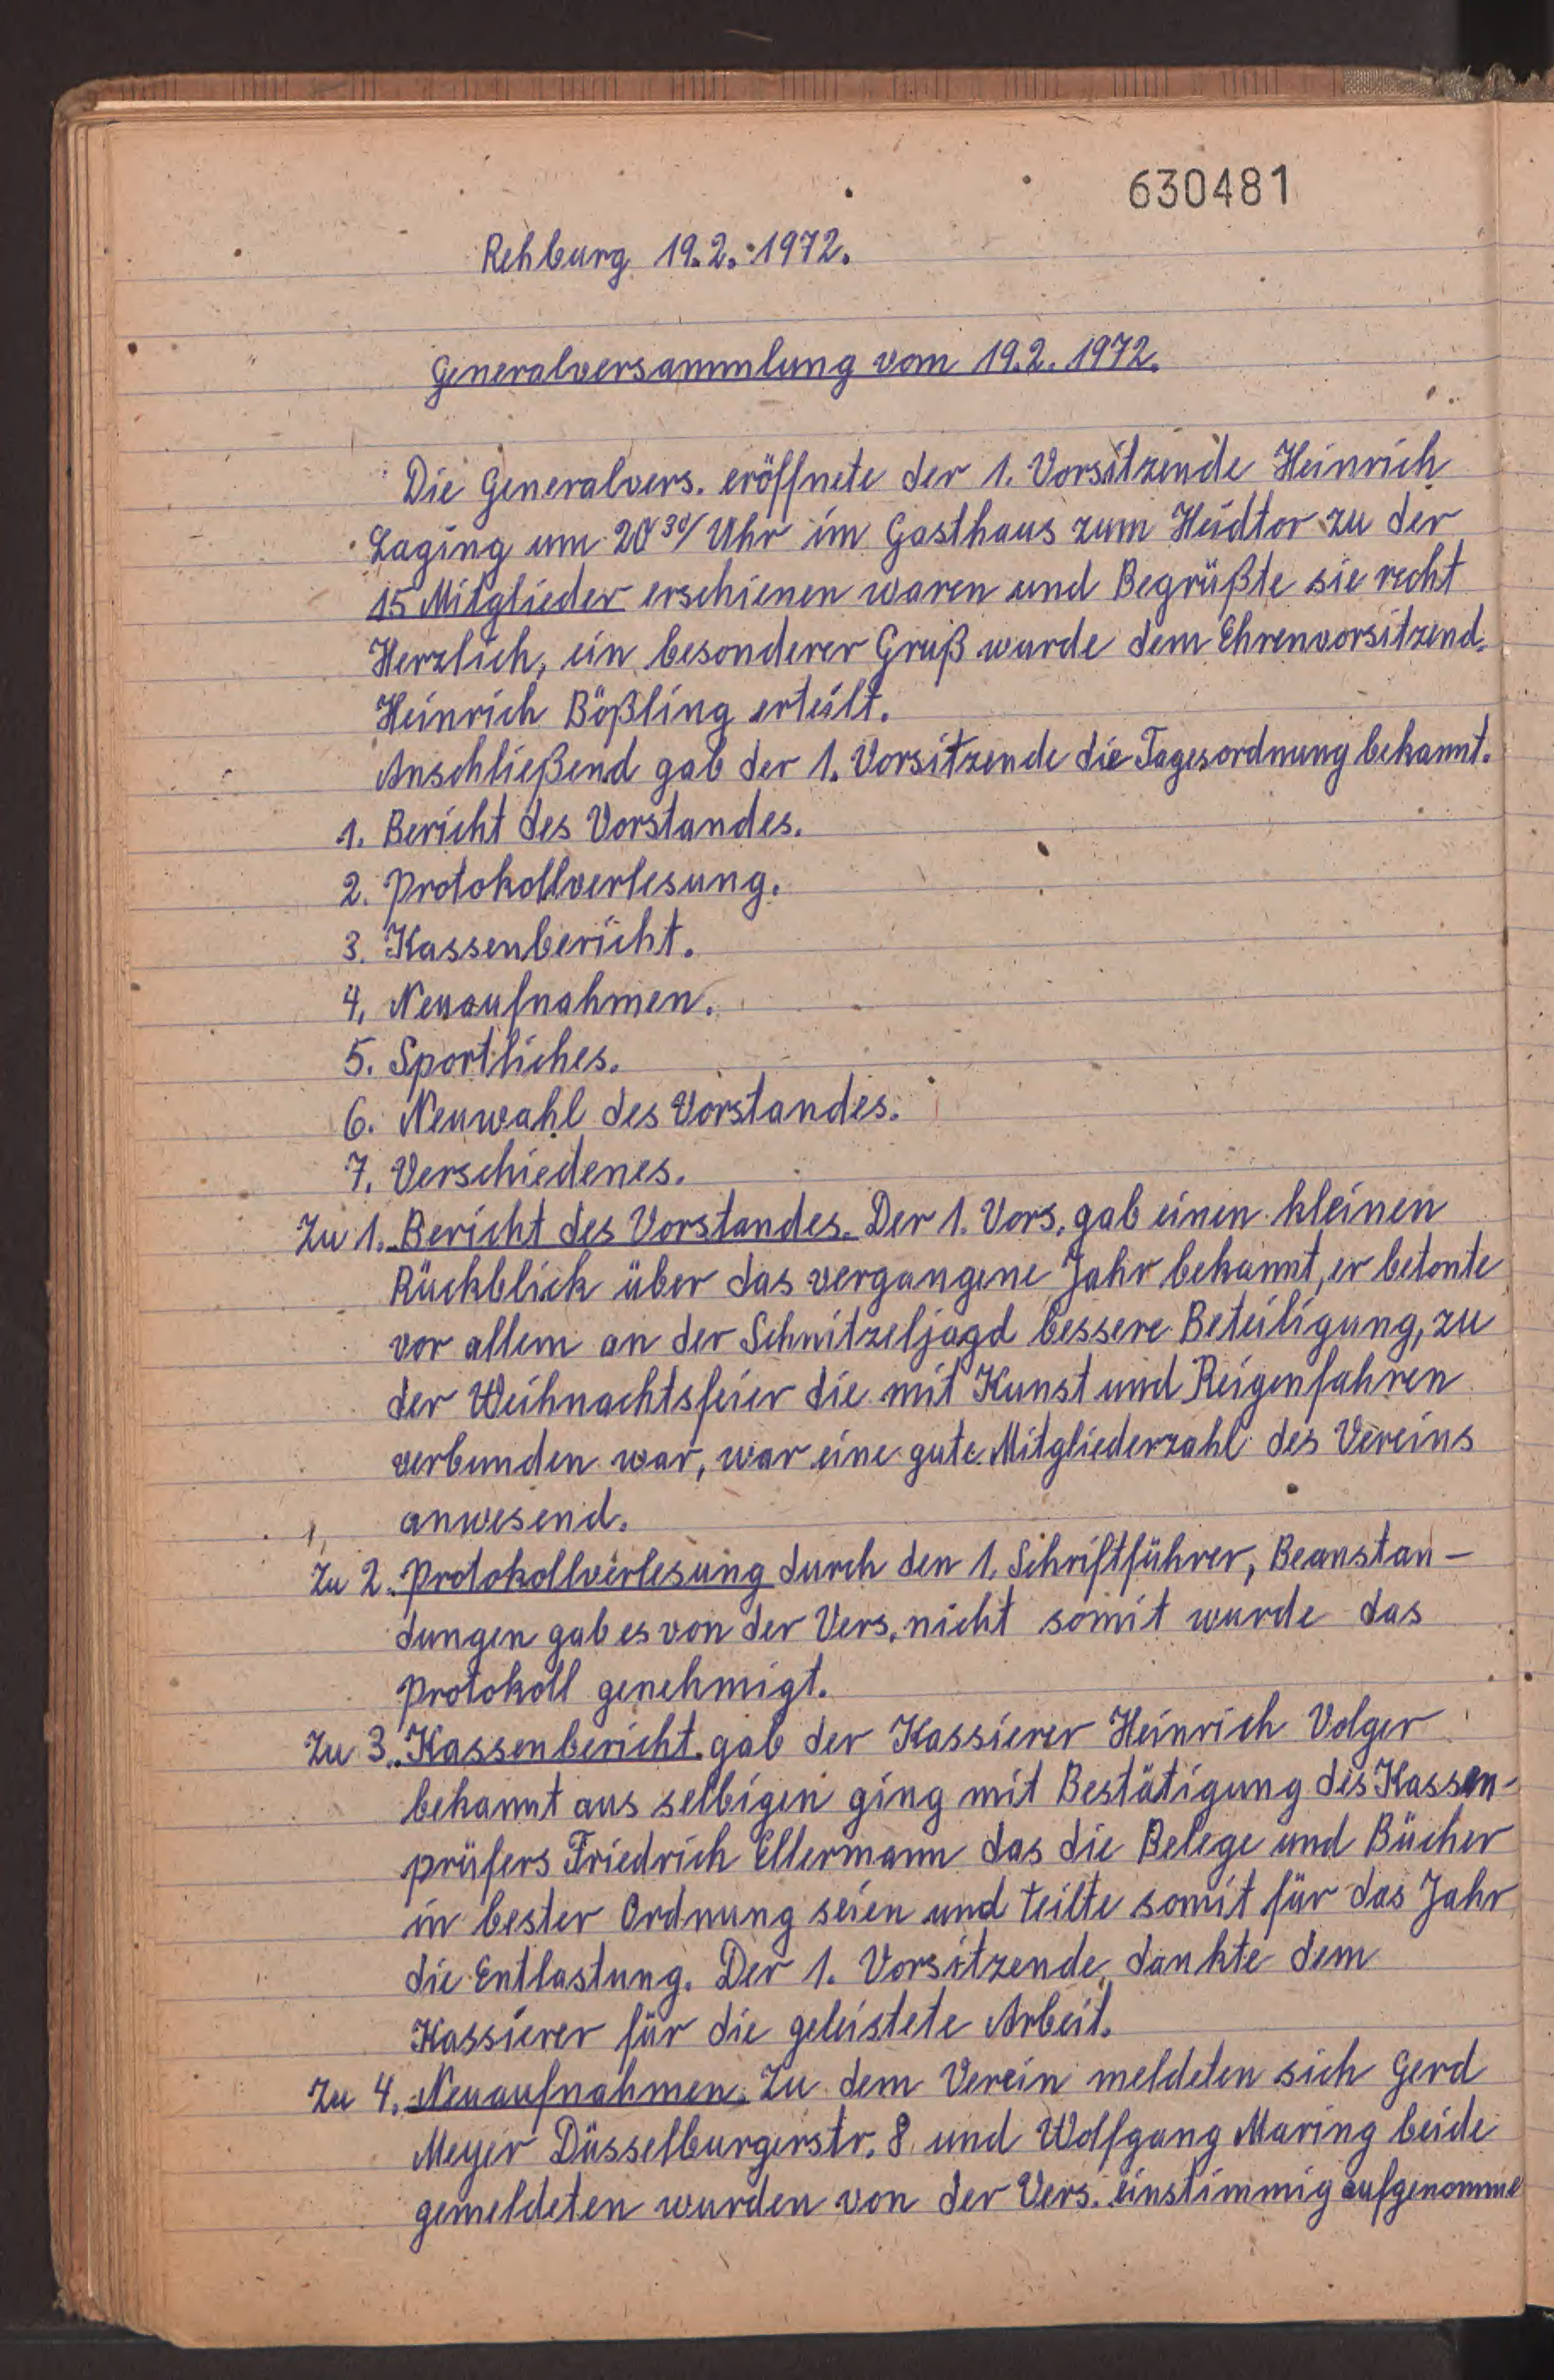 630481
Rehburg 19.2.1972.
Generalversammlung vom 19.2.1972.
Die Generalvers. eröffnete der 1. Vorsitzende Heinrich
Laging um 20³⁰/ Uhr im Gasthaus zum Heidtor zu der
15 Mitglieder erschienen waren und Begrüßte sie recht
Herzlich, ein besonderer Gruß wurde dem Ehrenvorsitzend.
Heinrich Bößling erteilt.
Anschließend gab der 1. Vorsitzende die Tagesordnung bekannt.
1. Bericht des Vorstandes.
2. Protokollverlesung.
3. Kassenbericht.
4. Neuaufnahmen.
5. Sportliches.
6. Neuwahl des Vorstandes.
7. Verschiedenes.
Zu 1. Bericht des Vorstandes. Der 1. Vors. gab einen kleinen
Rückblick über das vergangene Jahr bekannt, er betonte
vor allem an der Schnitzeljagd bessere Beteiligung, zu
der Weihnachtsfeier die mit Kunst und Reigenfahren
verbunden war, war eine gute Mitgliederzahl des Vereins
anwesend.
Zu 2. Protokollverlesung durch den 1. Schriftführer, Beanstan-
dungen gab es von der Vers. nicht somit wurde das
Protokoll genehmigt.
Zu 3. Kassenbericht. gab der Kassierer Heinrich Volger
bekannt aus selbigen ging mit Bestätigung des Kassen-
prüfers Friedrich Ellermann das die Belege und Bücher
in bester Ordnung seien und teilte somit für das Jahr
die Entlastung. Der 1. Vorsitzende dankte dem
Kassierer für die geleistete Arbeit.
Zu 4. Neuaufnahmen. Zu dem Verein meldeten sich Gerd
Meyer Düsselburgerstr. 8 und Wolfgang Maring beide
gemeldeten wurden von der Vers. einstimmig aufgenomme